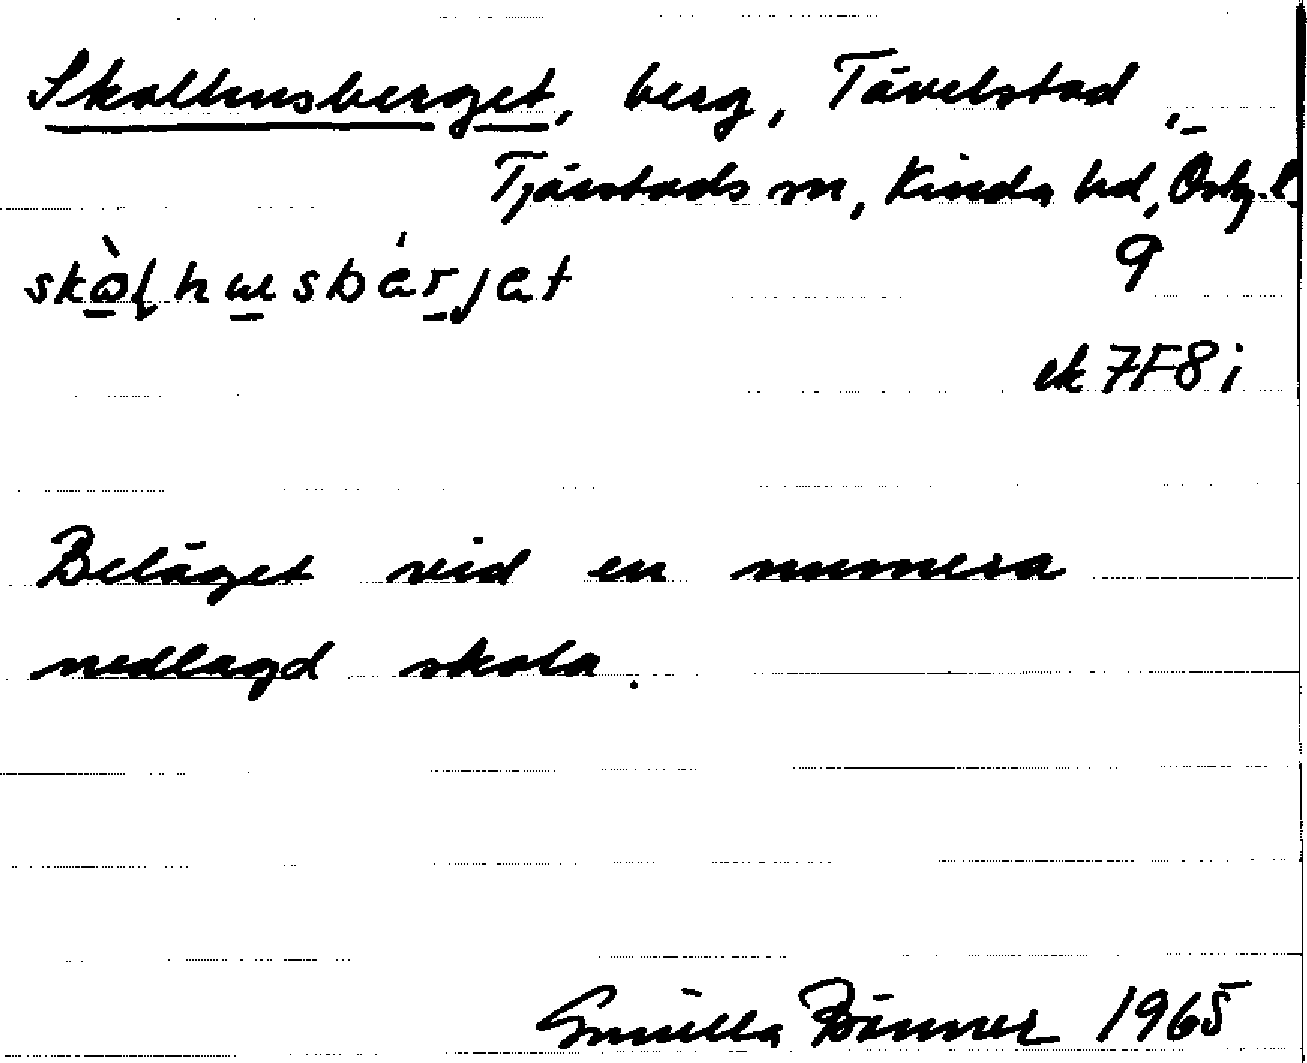 Skolhusberget, berg, Tävelstad,
Tjärstads sn, Kinda hd, Östg. l.
9
ek 7F8i
Beläget vid en numera
nedlagd skola.
Gunilla 1965